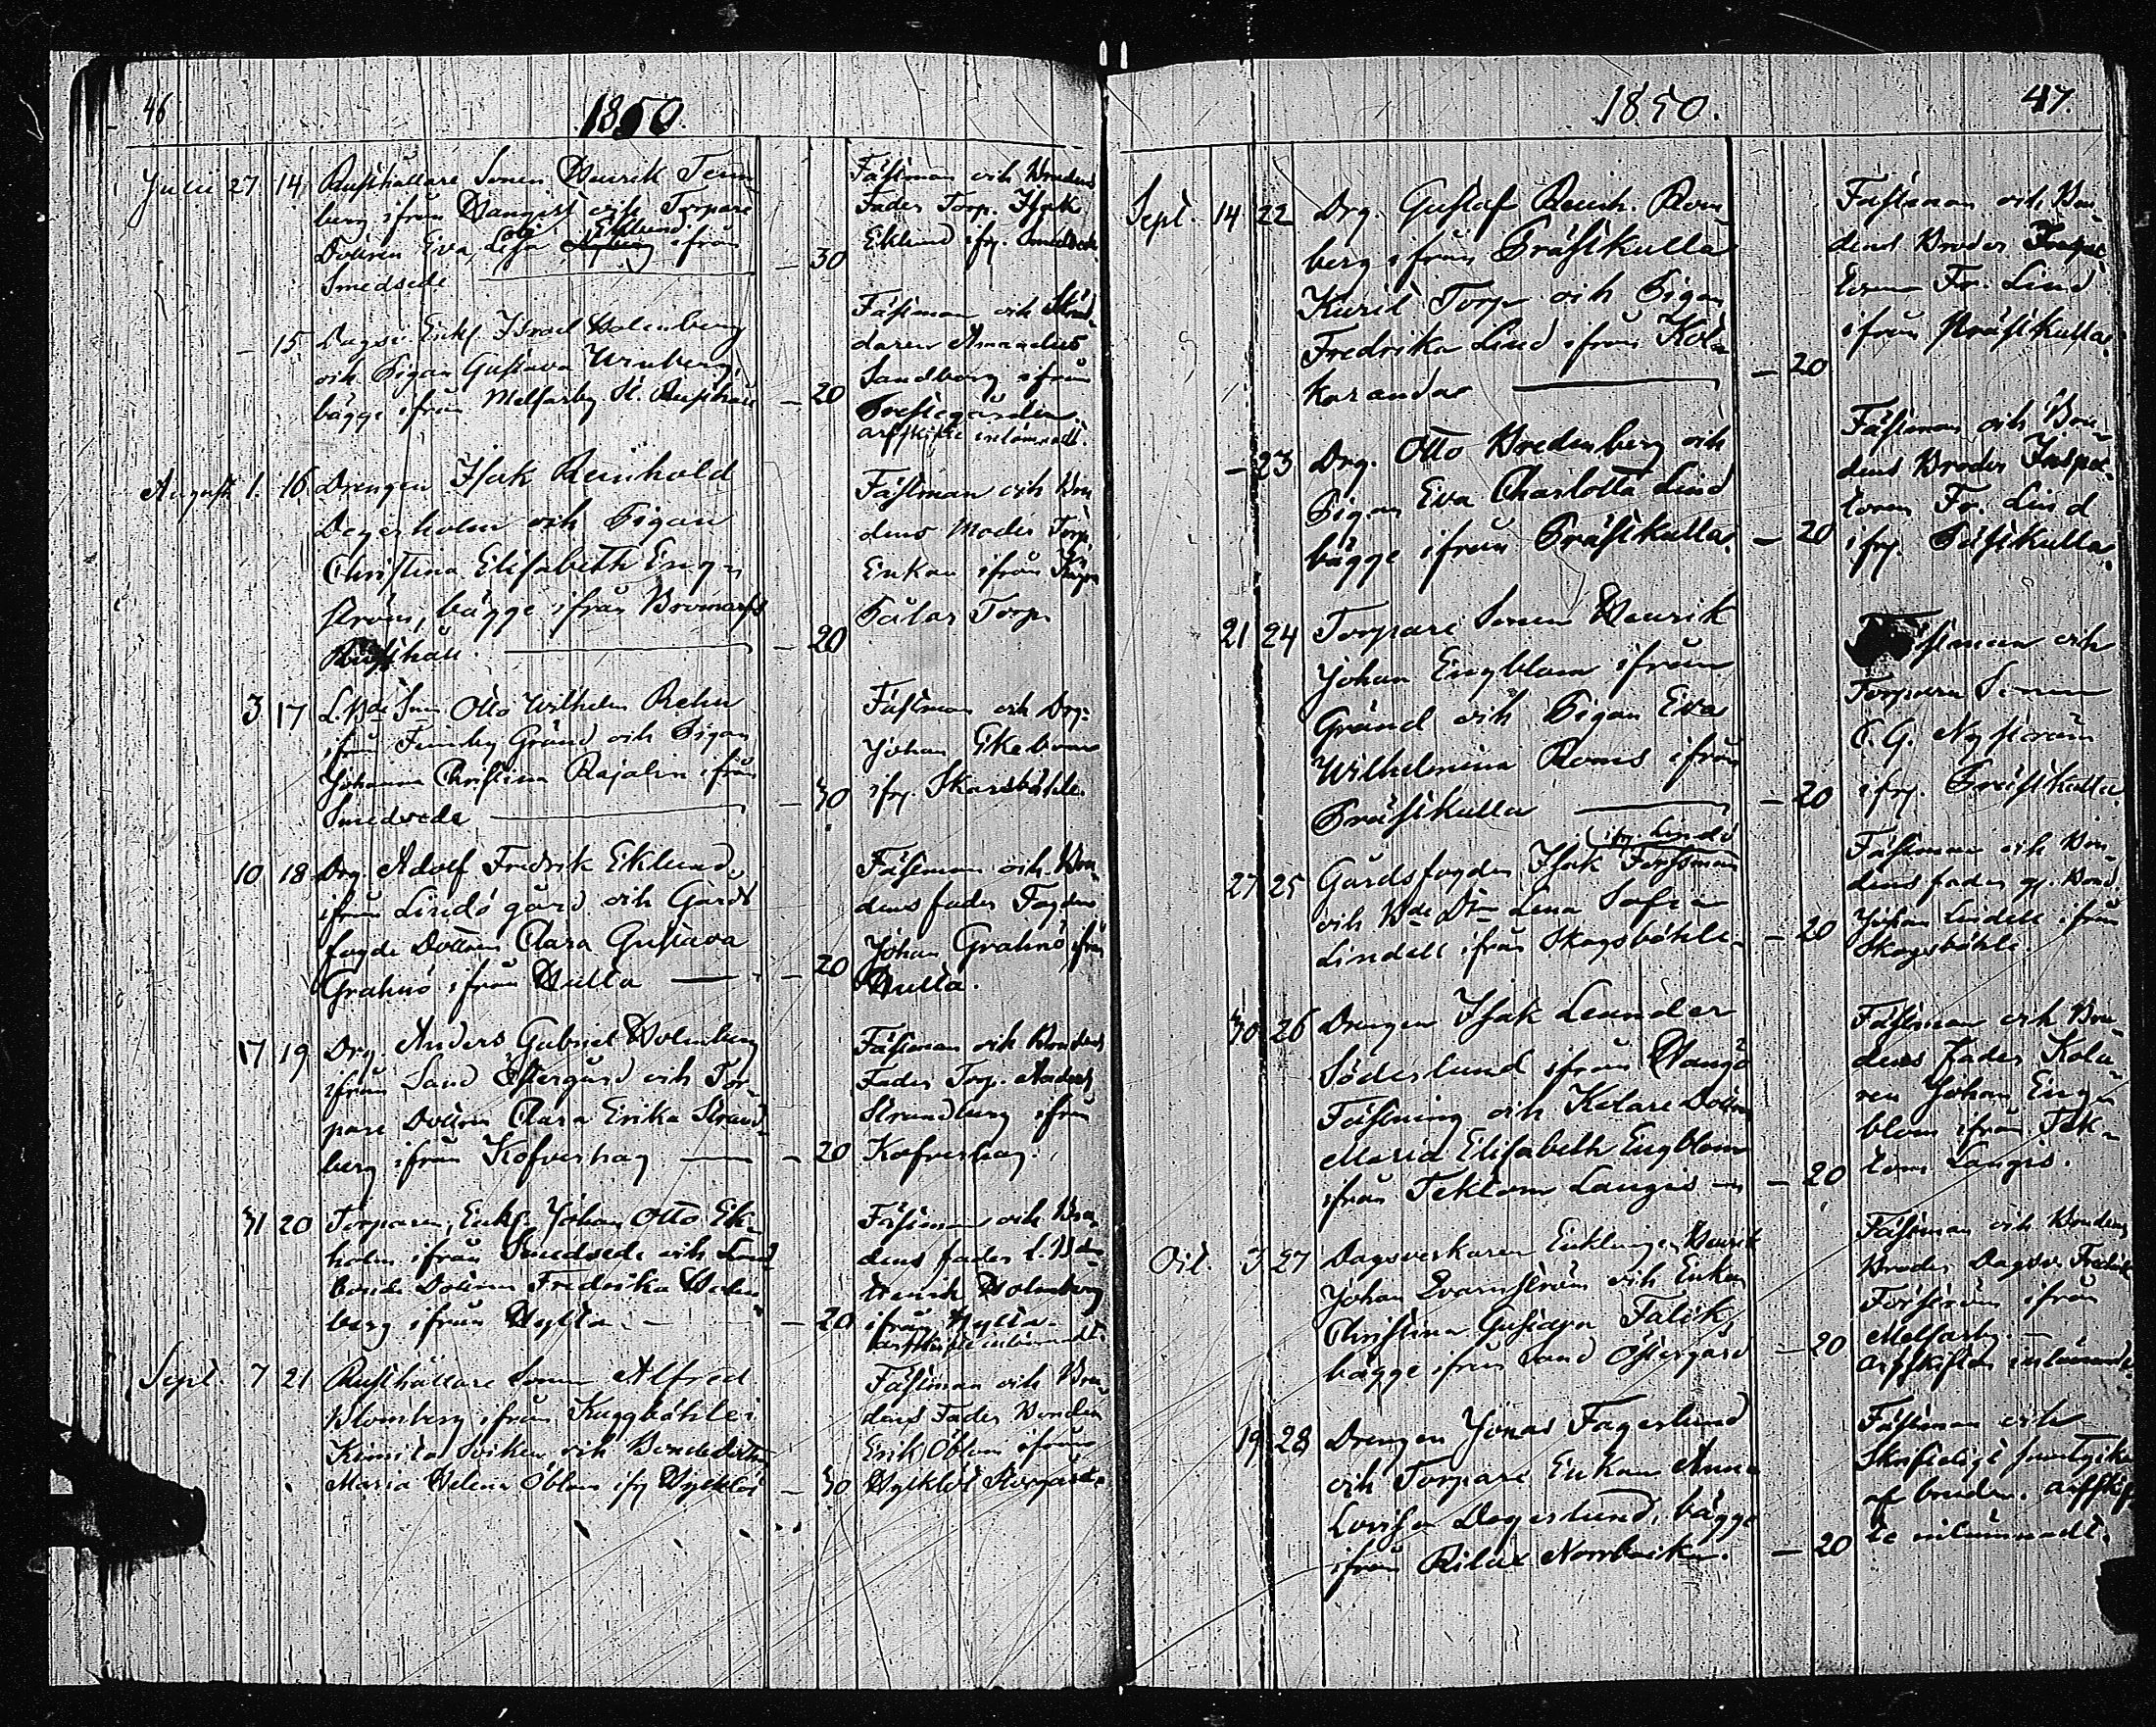 46
1850.
Julii 27 14 Rusthållare Sonen Henrik Tenn-
berg ifrån Hangist och Torpare
Dottren Eva Lisa Eklund ifrån
Smedsede — 30
Fästman och Brudens
Fader Torp. Isak
Eklund ifr. Smedsede
— 15 Dagsv. Enkl. Israel Holmberg
och Pigan Gustava Winberg,
bägge ifrån Melsarby St. Rusthåll — 20
Fästman och
daren Amadeus
Sandborg ifrån
Prestegården.
arfskifte inlämnadt.
August 1. 16 Drengen Isak Reinhold
Degerholm och Pigan
Christina Elisabeth Eng-
ström, bägge ifrån Bromarfs
Rusthåll. — 20
Fästman och Bru
dens Moder Torp.
Enkan ifrån
Torp
3 17 L.Bde Son Otto Wilhelm Rehn
ifrån Funnby Gränd och Pigan
Johanna Christina Rajalin ifrån
Smedsede — 30
Fästman och Drg.
Johan Ekebom
ifr. Skarsböhle.
10 18 Drg. Adolf Fredrik Eklund,
ifrån Lindö gård och Gårds
fogde Dottren Clara Gustava
Grahnö ifrån Hulta — 20
Fästman och Bru-
dens fader Fogden
Johan Grahnö ifrån
Hulta.
17 19 Drg. Anders Gabriel Holmberg
ifrån Sand Östergård och Tor-
pare Dottren Clara Erika Strand-
berg ifrån Kofverhag — 20
Fästman och Brudens
Fader Torp. Anders
Strandberg ifrån
Kofverhag.
31 20 Torparen, Enkl. Johan Otto Ek-
holm ifrån Smedsede och Land
bonde Dottren Fredrika Holm
berg ifrån Hylta. — 20
Fästman och Bru-
dens fader L.Bde
Henrik Holmberg
ifrån Hylta.
arfskifte inlämnadt.
Sept. 7 21 Rusthållare Sonen Alfred
Blomberg ifrån Kuggböhle i
Kimito Socken och Bondedottren
Maria Helena Öblom ifr Hyltklöf — 30
Fästman och Bru-
dens Fader Bonden
Erik Öblom ifrån
Hyltklöf Storgård.
1850.
47.
Sept. 14 22 Drg. Gustaf Reinh. Rom-
berg ifrån Prästkulla
Torp och Pigan
Fredrika Lind ifrån
— 20
Fästman och Bru-
dens Broder Inspec-
toren Fr. Lind
ifrån Prästkulla.
— 23 Drg. Otto Bredenberg och
Pigan Eva Charlotta Lind
bägge ifrån Prästkulla. — 20
Fästman och Bru-
dens Broder Inspec-
toren Fr. Lind
ifr. Prästkulla.
21 24 Torpare Sonen Henrik
Johan Engblom ifrån
Gränd och Pigan Eva
Wilhelmina Roms ifrån
Prästkulla — 20
Fästman och
Torpare Sonen
C. G. Nyström
ifr. Prästkulla.
27 25 Gårdsfogden Isak Forssman ifr. Lindö
och Bde Dtr Lena Sofia
Lindell ifrån Skogsböhle. — 20
Fästman och Bru-
dens fader gj. Bond.
Johan Lindell ifrån
Skogsböhle.
30 26 Drengen Isak Leander
Söderlund ifrån Hangö
Fästning och Kolare Dottren
Maria Elisabeth Engblom
ifrån Tektom Langis — 20
Fästman och Bru-
dens Fader Kola-
ren Johan Eng-
blom ifrån Tek-
tom Langis.
Oct. 3 27 Dagsverkaren Enklingen Henrik
Johan Qvarnström och Enkan
Christina Gustava Falck,
bägge ifrån Sand Östergård — 20
Fästman och Brudens
Broder Dagsv. Fredrik
Forström ifrån
Melsarby. —
arfskiften inlämnade.
19 28 Drengen Jonas Fagerlund
och Torpare Enkan Anna
Lovisa Degerlund, bägge
ifrån Rilax Norrbacka. — 20
Fästman och
Skrifteligt samtycke
af bruden. arfskif-
te inlämnadt.